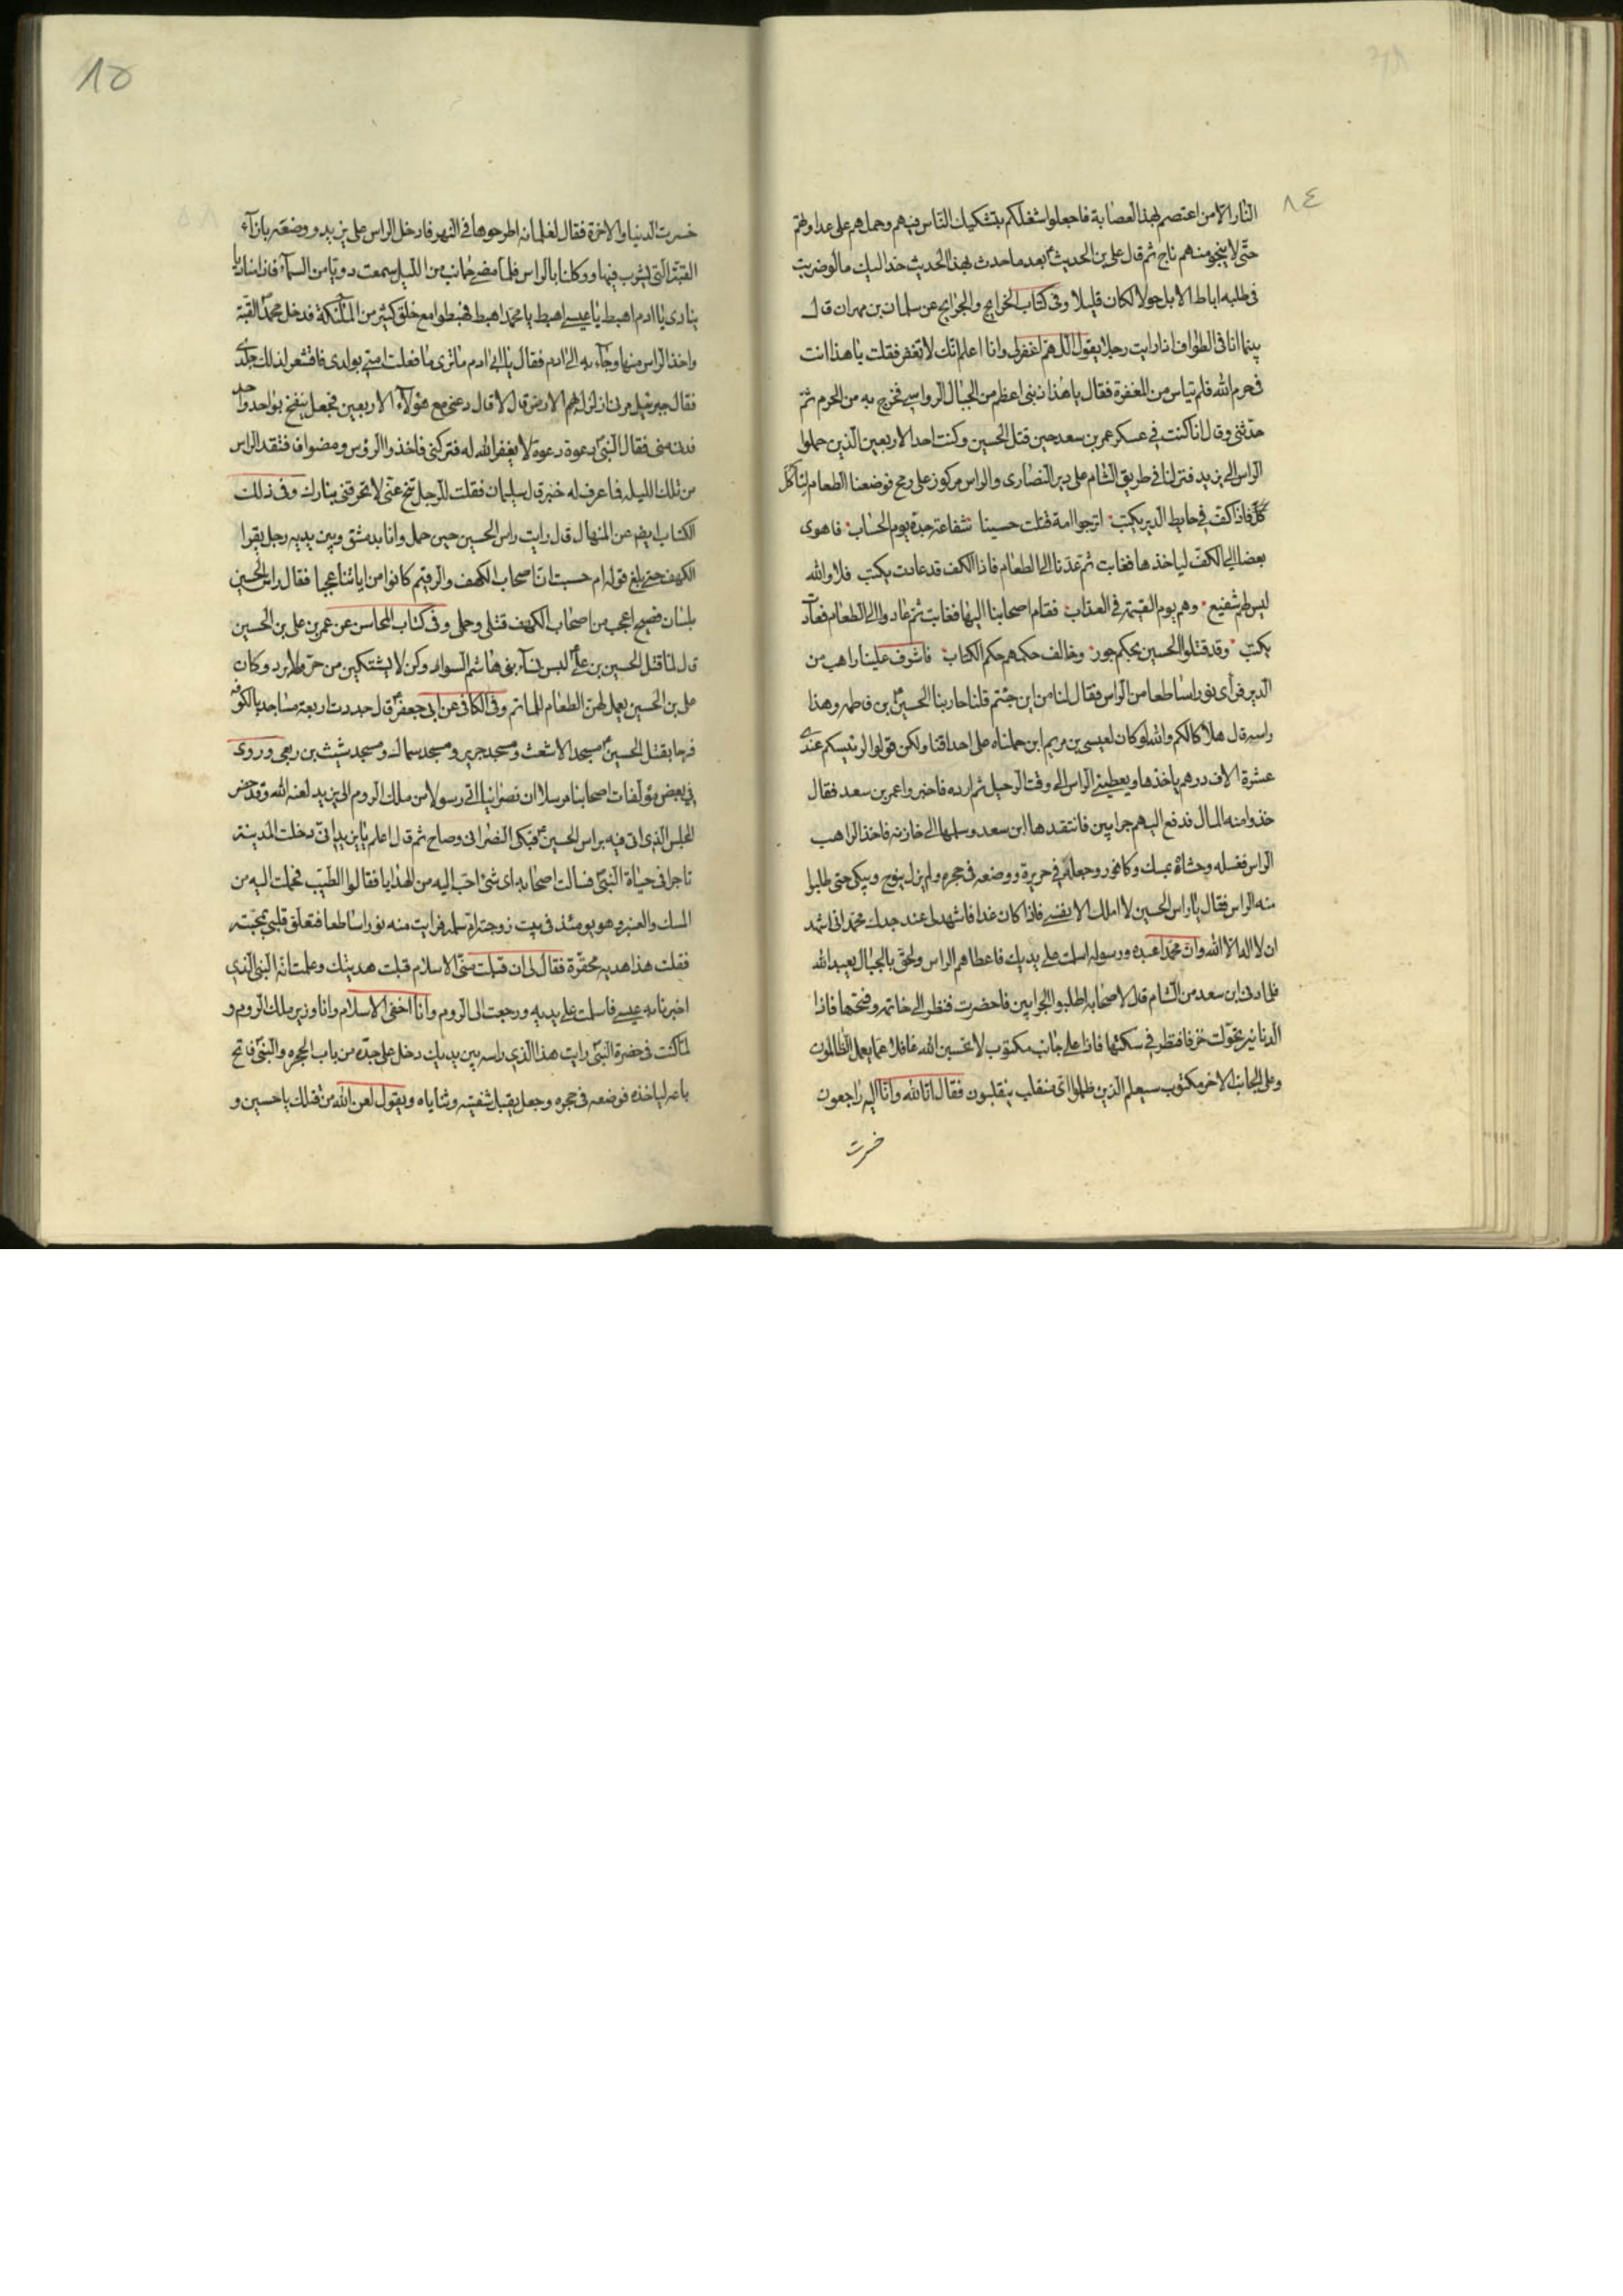 ٨٤
النار الا من اعتصم بهذا العصابة فاجعلوا شغلكم بتشكيك الناس فيهم وحملهم على عداوتهم
حتى لا ينجو منهم ناج ثم قال على بن الحديث بعد ما حدث بهذا الحديث خذ اليك ما لو ضربت
فى طلبه اباط الابل حولا لكان قليلا وفى كتاب الخرايج والجرايح عن سلمان بن مهران قال
بينما انا فى الطواف اذ رايت رجلا يقول اللهم اغفر لى وانا اعلم انك لا تغفر فقلت يا هذا انت
فى حرم الله فلم تياس من المغفرة فقال يا هذا ذنبى اعظم من الجبال الرواسى فخرج به من الحرم ثم
حدثنى وقال انا كنت فى عسكر عمر بن سعد حين قتل الحسين وكنت احد الاربعين الذين حملوا
الراس الى يزيد فنزلنا فى طريق الشام على دير النصارى والراس مركوز على رمح فوضعنا الطعام لناكل
فاذا كف فى حايط الدير يكتب اترجوا امة قتلت حسينا شفاعة جده يوم الحساب فاهوى
بعضنا الى الكف لياخذها فغابت ثم عدنا الى الطعام فاذا الكف قد عادت يكتب فلا والله
ليس لهم شفيع وهم يوم القيمة فى العذاب فقام اصحابنا اليها فغابت ثم عادوا الى الطعام فعادت
يكتب وقد قتلوا الحسين بحكم جور وخالف حكمهم حكم الكتاب فاشرف علينا راهب من
الدير فرأى نورا ساطعا من الراس فقال لنا من اين جئتم قلنا حاربنا الحسين بن فاطمه وهذا
راسه قال هلاكا لكم والله لو كان لعيسى بن مريم ابن حملناه على احداقنا ولكن قولوا لرئيسكم عندى
عشرة الاف درهم ياخذها ويعطينى الراس الى وقت الرحيل ثم ارده فاخبروا عمر بن سعد فقال
خذوا منه المال فدفع اليهم جرابين فانتقدها ابن سعد وسلمها الى خازنه فاخذ الراهب
الراس فغسله وحشاه بمسك وكافور وجعله فى حريرة ووضعه فى حجره ولم يزل ينوح ويبكى حتى طلبوا
منه الراس فقال يا راس الحسين لا املك الا نفسى فاذا كان غدا فاشهد لى عند جدك محمد انى اشهد
ان لا اله الا الله وان محمدا عبده ورسوله اسلمت على يديك فاعطاهم الراس ولحق بالجبال يعبد الله
فلما دنى ابن سعد من الشام قال لاصحابه اطلبوا الجرابين فاحضرت فنظر الى خاتمه وفتحها فاذا
الدنانير تحولت خزفا فنظر فى سكتها فاذا على جانب مكتوب لا تحسبن الله غافلا عما يعمل الظالمون
وعلى الجانب الاخر مكتوب سيعلم الذين ظلموا اى منقلب ينقلبون فقال انا لله وانا اليه راجعون
خسرت
٨٥
خسرت الدنيا والاخرة فقال لغلمانه اطرحوها فى النهر فادخل الراس على يزيد ووضعته بازآء
القبة التى يشرب فيها ووكلنا بالراس فلما مضى جانب من الليل سمعت دويا من السمآء فاذا مناديا
ينادى يا ادم اهبط يا عيسى اهبط يا محمد اهبط فهبطوا مع خلق كثير من الملئكة فدخل محمد القبة
واخذ الراس منها وجآء به الى ادم فقال يا ابى ادم ما ترى ما فعلت امتى بولدى فاقشعر لذلك جلدى
فقال جبرئيل مرنى ازلزل بهم الارض قال لا قال دعنى مع هؤلآء الاربعين فجعل ينفخ بواحد واحد
فدنا منى فقال النبى دعوه دعوه لا يغفر الله له فتركنى فاخذوا الرؤس ومضوا فافتقد الراس
من تلك الليله فما عرف له خبر قال سليمان فقلت للرجل تنح عنى لا تحرقنى بنارك وفى ذلك
الكتاب ايضا عن المنهال قال رايت راس الحسين حين حمل وانا بدمشق وبين يديه رجل يقرا
الكهف حتى بلغ قوله ام حسبت ان اصحاب الكهف والرقيم كانوا من اياتنا عجبا فقال راس الحسين
بلسان فصيح اعجب من اصحاب الكهف قتلى وحملى وفى كتاب المحاسن عن عمر بن على بن الحسين
قال لما قتل الحسين بن على لبس نسآء بنى هاشم السواد وكن لا يشتكين من حر ولا برد وكان
على بن الحسين يعمل لهن الطعام للماتم وفى الكافى عن ابى جعفر قال جددت اربعة مساجد بالكوفه
فرحا بقتل الحسين مسجد الاشعث ومسجد جرير ومسجد سماك ومسجد شبث بن ربعى وروى
فى بعض مؤلفات اصحابنا مرسلا ان نصرانيا اتى رسولا من ملك الروم الى يزيد لعنه الله وقد حضر
المجلس الذى اتى فيه براس الحسين فبكى النصرانى وصاح ثم قال اعلم يا يزيد انى دخلت المدينة
تاجرا فى حياة النبى فسالت اصحابه اى شئ احب اليه من الهدايا فقالوا الطيب فحملت اليه من
المسك والعنبر وهو يومئذ فى بيت زوجته ام سلمه فرايت منه نورا ساطعا فتعلق قلبى بمحبته
فقلت هذا هديه محقرة فقال لى ان قبلت منى الاسلام قبلت هديتك وعلمت انه النبى الذى
اخبرنا به عيسى فاسلمت على يديه ورجعت الى الروم وانا اخفى الاسلام وانا وزير ملك الروم و
لما كنت فى حضرة النبى رايت هذا الذى راسه بين يديك دخل على جده من باب الحجره والنبى فاتح
باعه لياخذه فوضعه فى حجره وجعل يقبل شفتيه وثناياه ويقول لعن الله من قتلك يا حسين و